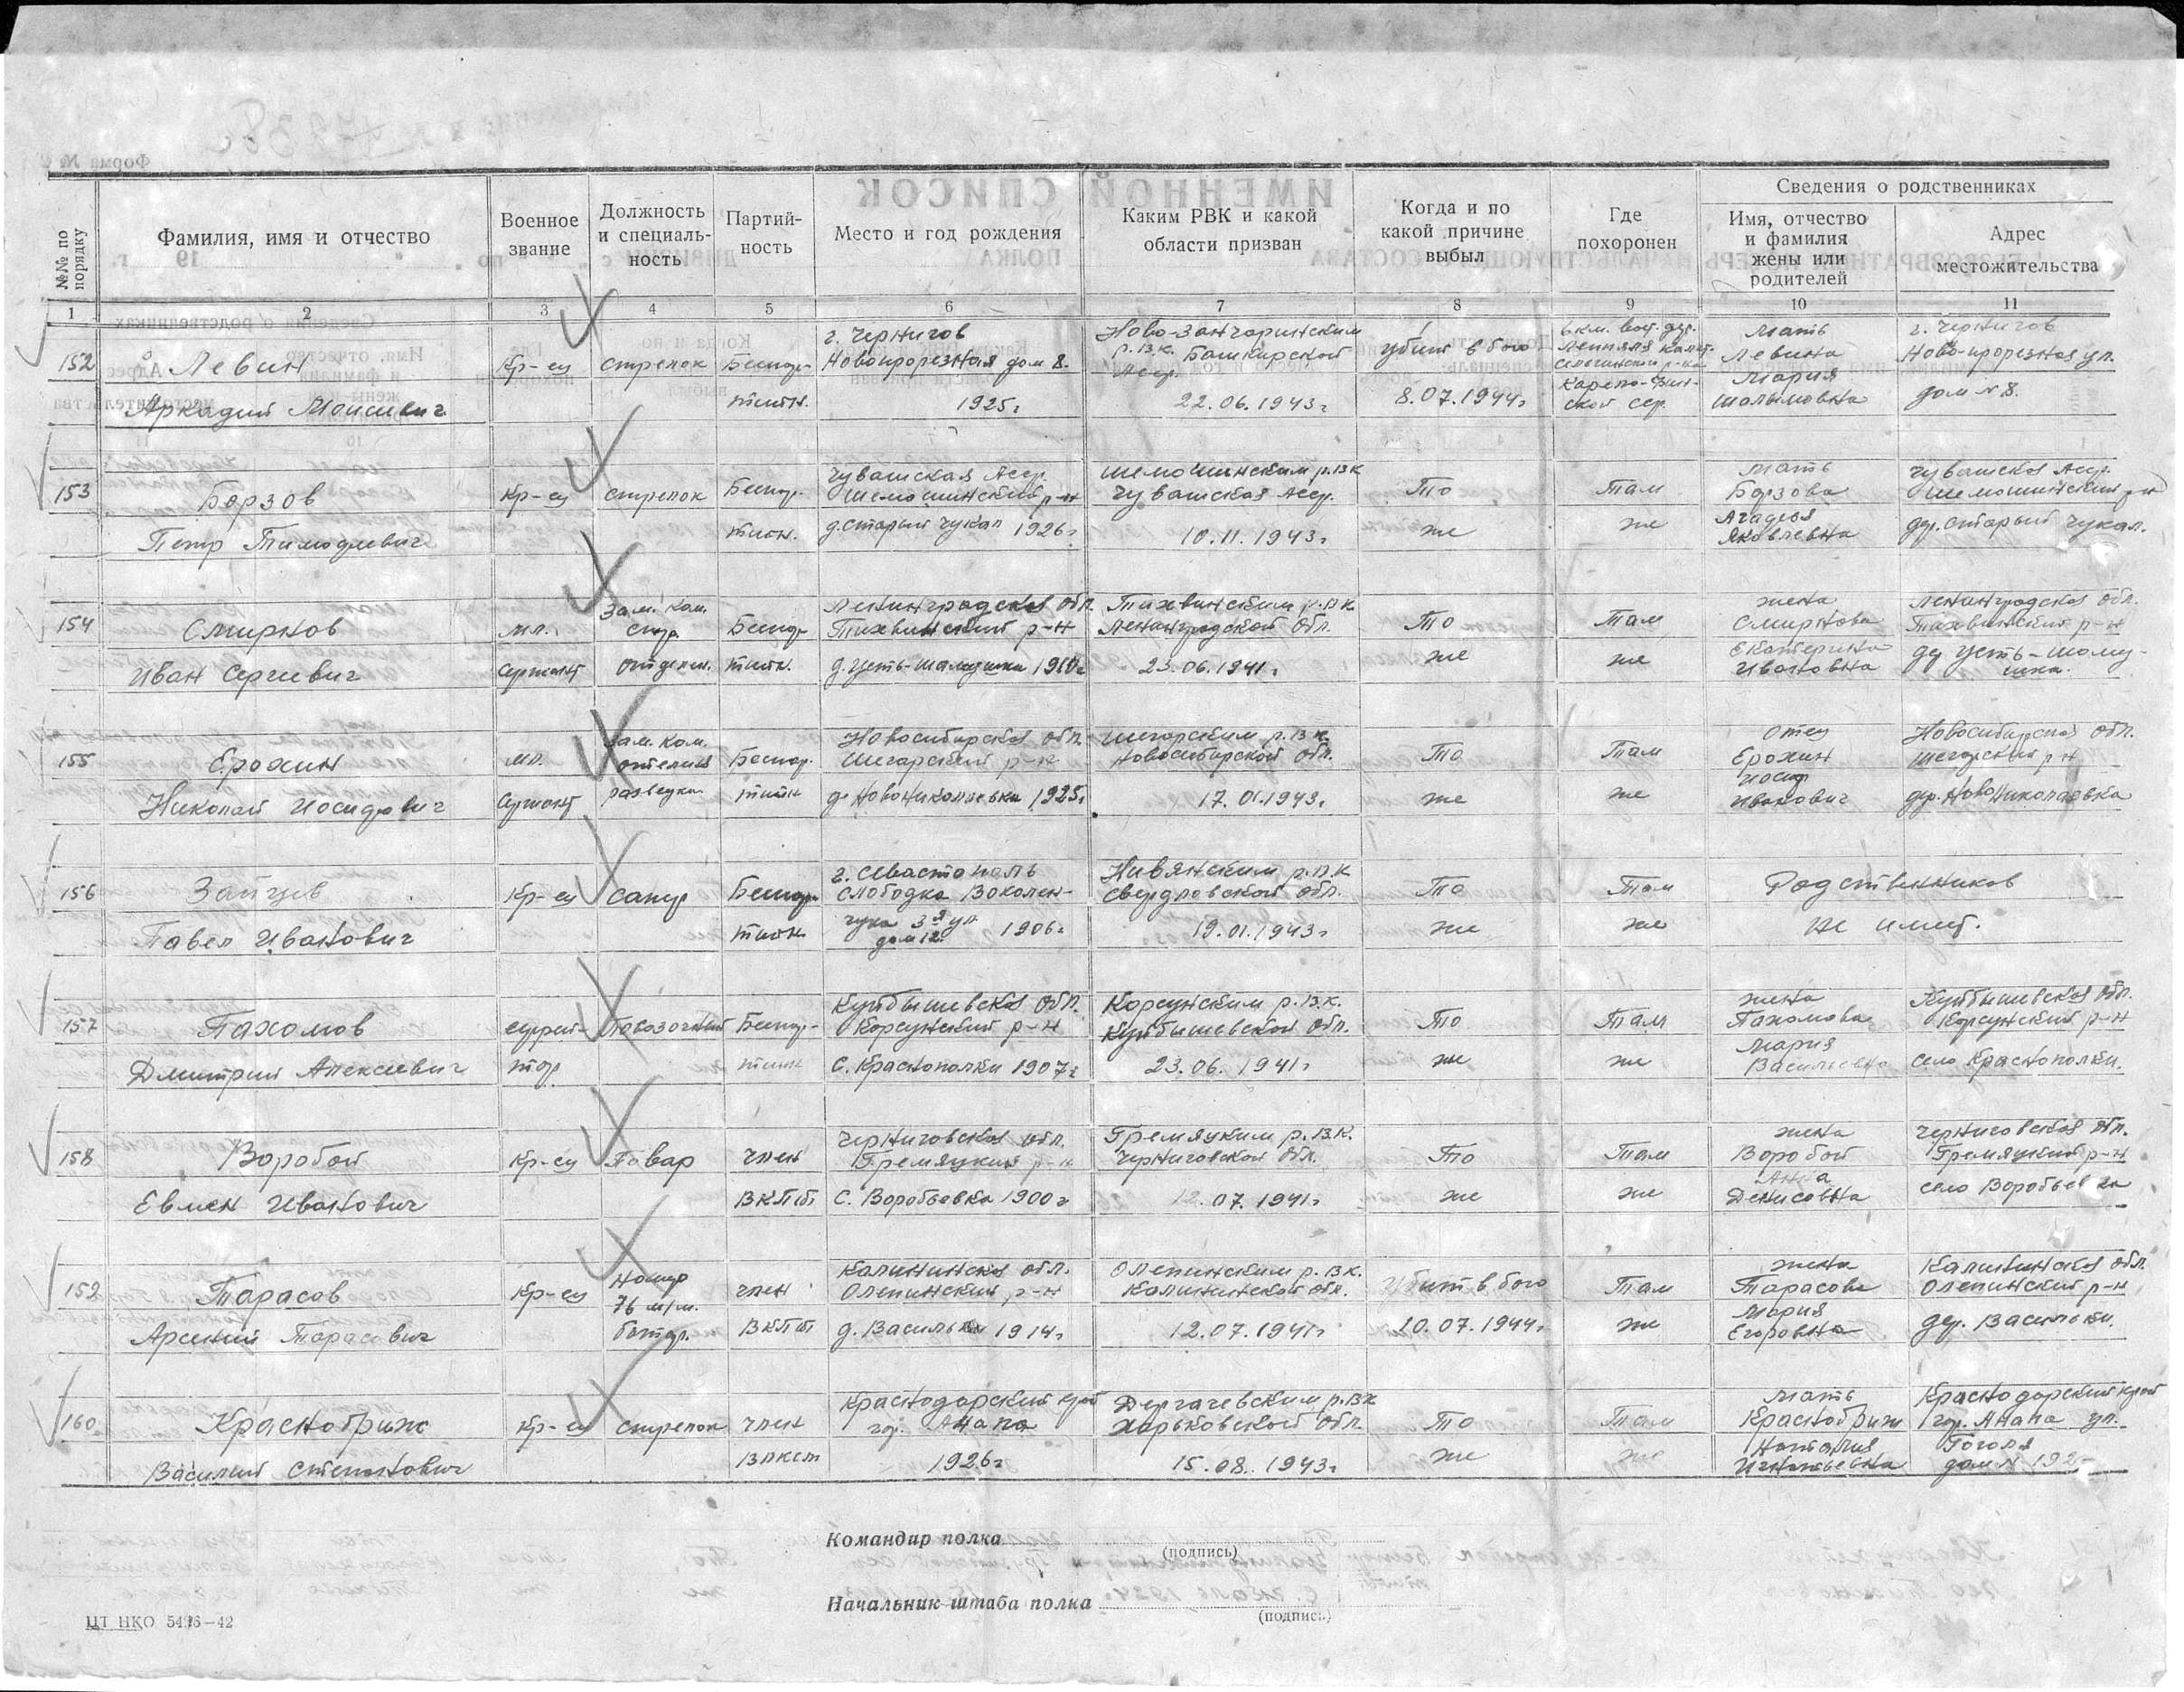 Форма №
ИМЕННОЙ СПИСОК
№№ по порядку
Фамилия, имя и отчество
Военное звание
Должность и специаль- ность
Партий- ность
Место и год рождения
Каким РВК и какой области призван
Когда и по какой причине выбыл
Где похоронен
Сведения о родственниках
Имя, отчество и фамилия жены или родителей
Адрес местожительства
1 2 3 4 5 6 7 8 9 10 11
152 Левин Аркадий Моисеевич
Кр-ец
стрелок
Беспар- тийн.
г. Чернигов Новопрорезная дом 8. 1925г
р.в.к. Башкирской Асср. 22.06.1943г
убит в бою 8.07.1944г
6 км. вост. дер. Карело-Фин- ской сср.
мать Левина Мария
г. Чернигов Ново-прорезная ул. дом № 8.
153 Борзов Петр Тимофеевич
Кр-ец
стрелок
Беспар- тийн.
Чувашская Асср. Шемошинский р-н д. Старый Чукал 1926г
Шемошинским р.в.к Чувашская Асср. 10.11.1943г
То же
Там же
мать Борзова Яковлевна
Чувашская Асср. Шемошинский р-н дер. Старый Чукал.
154 Смирнов Иван Сергеевич
мл. сержант
Зам. ком. отделен.
Беспар- тийн.
Ленинградская обл. Тихвинский р-н 1910г
Тихвинским р.в.к Ленинградской обл. 23.06.1941г
То же
Там же
жена Смирнова Екатерина Ивановна
Ленинградская обл. Тихвинский р-н
155 Ерохин Николай Иосифович
мл. сержант
Зам. ком. отделен разведки
Беспар- тийн
Новосибирская обл. Шегарский р-н д. Новониколаевка 1925г
Шегарским р.в.к. Новосибирской обл. 17.01.1943г
То же
Там же
отец Ерохин Иосиф Иванович
Новосибирская обл. Шегарский р-н дер. Новониколаевка
156 Зайцев Павел Иванович
Кр-ец
сапер
Беспар- тийн
г. Севастополь слободка 3я ул дом 12. 1906г
Нивянским р.в.к Свердловской обл. 19.01.1943г
То же
Там же
Родственников не имеет.
157 Пахомов Дмитрий Алексеевич
ефрей- тор
Повозочный
Беспар- тийн
Куйбышевская обл. Корсунский р-н с. Краснополки 1907г
Корсунским р.в.к. Куйбышевской обл. 23.06.1941г
То же
Там же
жена Пахомова Мария Васильевна
Куйбышевская обл. Корсунский р-н село Краснополки.
158 Воробой Евмен Иванович
Кр-ец
Повар
член ВКП(б)
Черниговская обл. Гремяцкий р-н с. Воробьевка 1900г
Гремяцким р.в.к. Черниговской обл. 12.07.1941г
То же
Там же
жена Воробой Анна Денисовна
Черниговская обл. Гремяцкий р-н село Воробьевка
159 Тарасов Арсений Тарасович
Кр-ец
Номер 76 м/м. батар.
член ВКПб
Калининская обл. Оленинский р-н д. Васильки 1914г
Оленинским р.в.к. Калининской обл. 12.07.1941г
Убит в бою 10.07.1944г
Там же
жена Тарасова Мария Егоровна
Калининская обл. Оленинский р-н дер. Васильки.
160 Краснобриж Василий Степанович
Кр-ец
стрелок
член ВЛКСМ
Краснодарский край гор. Анапа 1926г
Дергачевским р.вк Харьковской обл. 15.08.1943г
То же
Там же
мать Краснобриж Наталия Игнатьевна
Краснодарский край гор. Анапа ул. Гоголя дом № 192
Командир полка
(подпись)
Начальник штаба полка
(подпись)
ЦТ НКО 5426—42